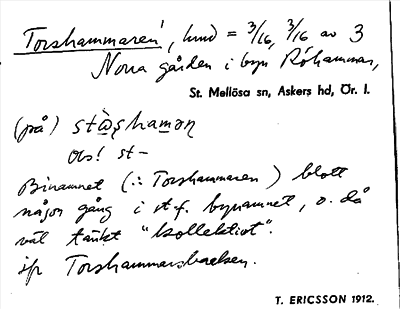 Torshammaren, hmd = 3/16, 3/16 av 3
Norra gården i byn Röhammar,
St. Mellösa sn, Askers hd, Ör. l.
(på)
Obs! st–
Binamnet (∴ Torshammaren) blott
någon gång i st. f. bynamnet, o. då
väl tänkt "kollektivt".
jfr Torshammarsbacken.
T. ERICSSON 1912.